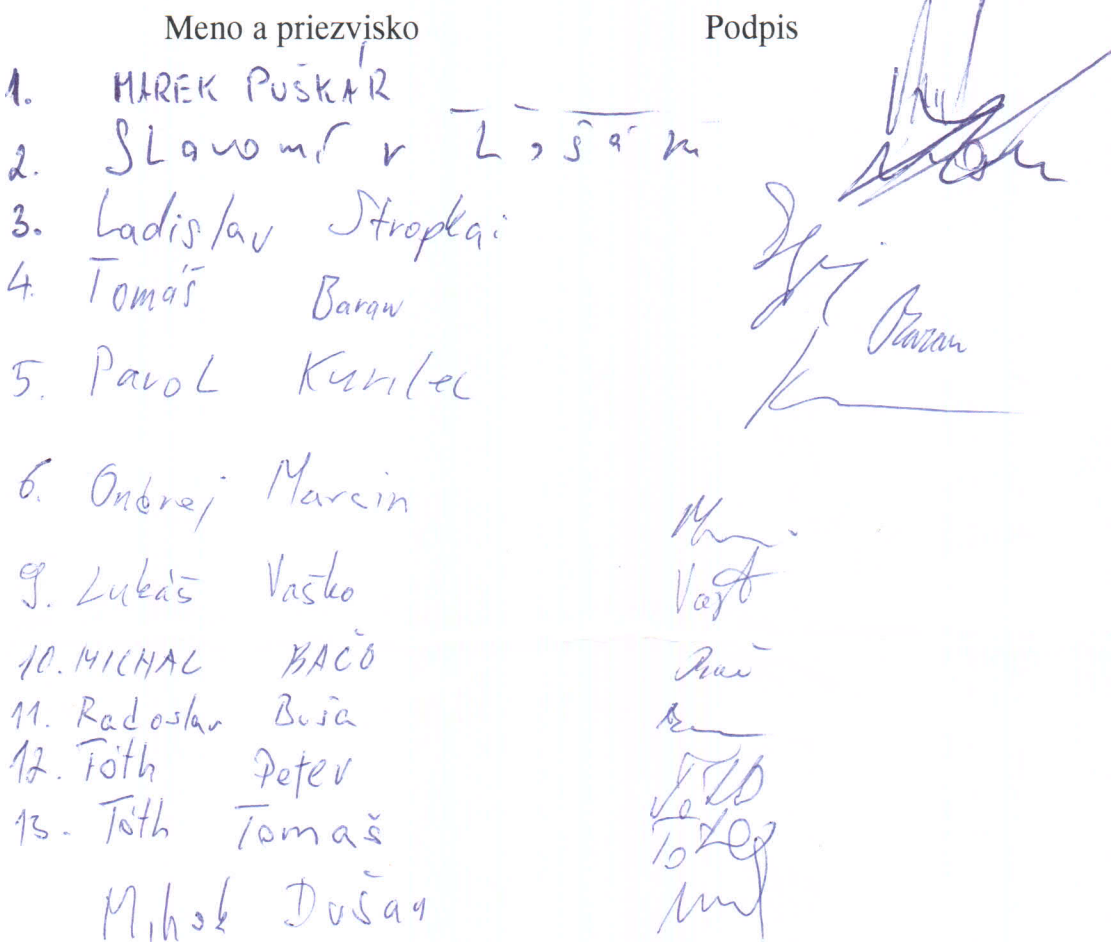 Meno a priezvisko Podpis
1. MAREK PUŠKÁR
2. Slavomír
3. Ladislav Stropkai
4. Tomáš Baran Baran
5. Pavol Kurilec
6. Ondrej Marcin
9. Lukáš Vaško
10. MICHAL BAČO
11. Radoslav Buša
12. Tóth Peter
13. Tóth Tomaš
Mihok Dušan